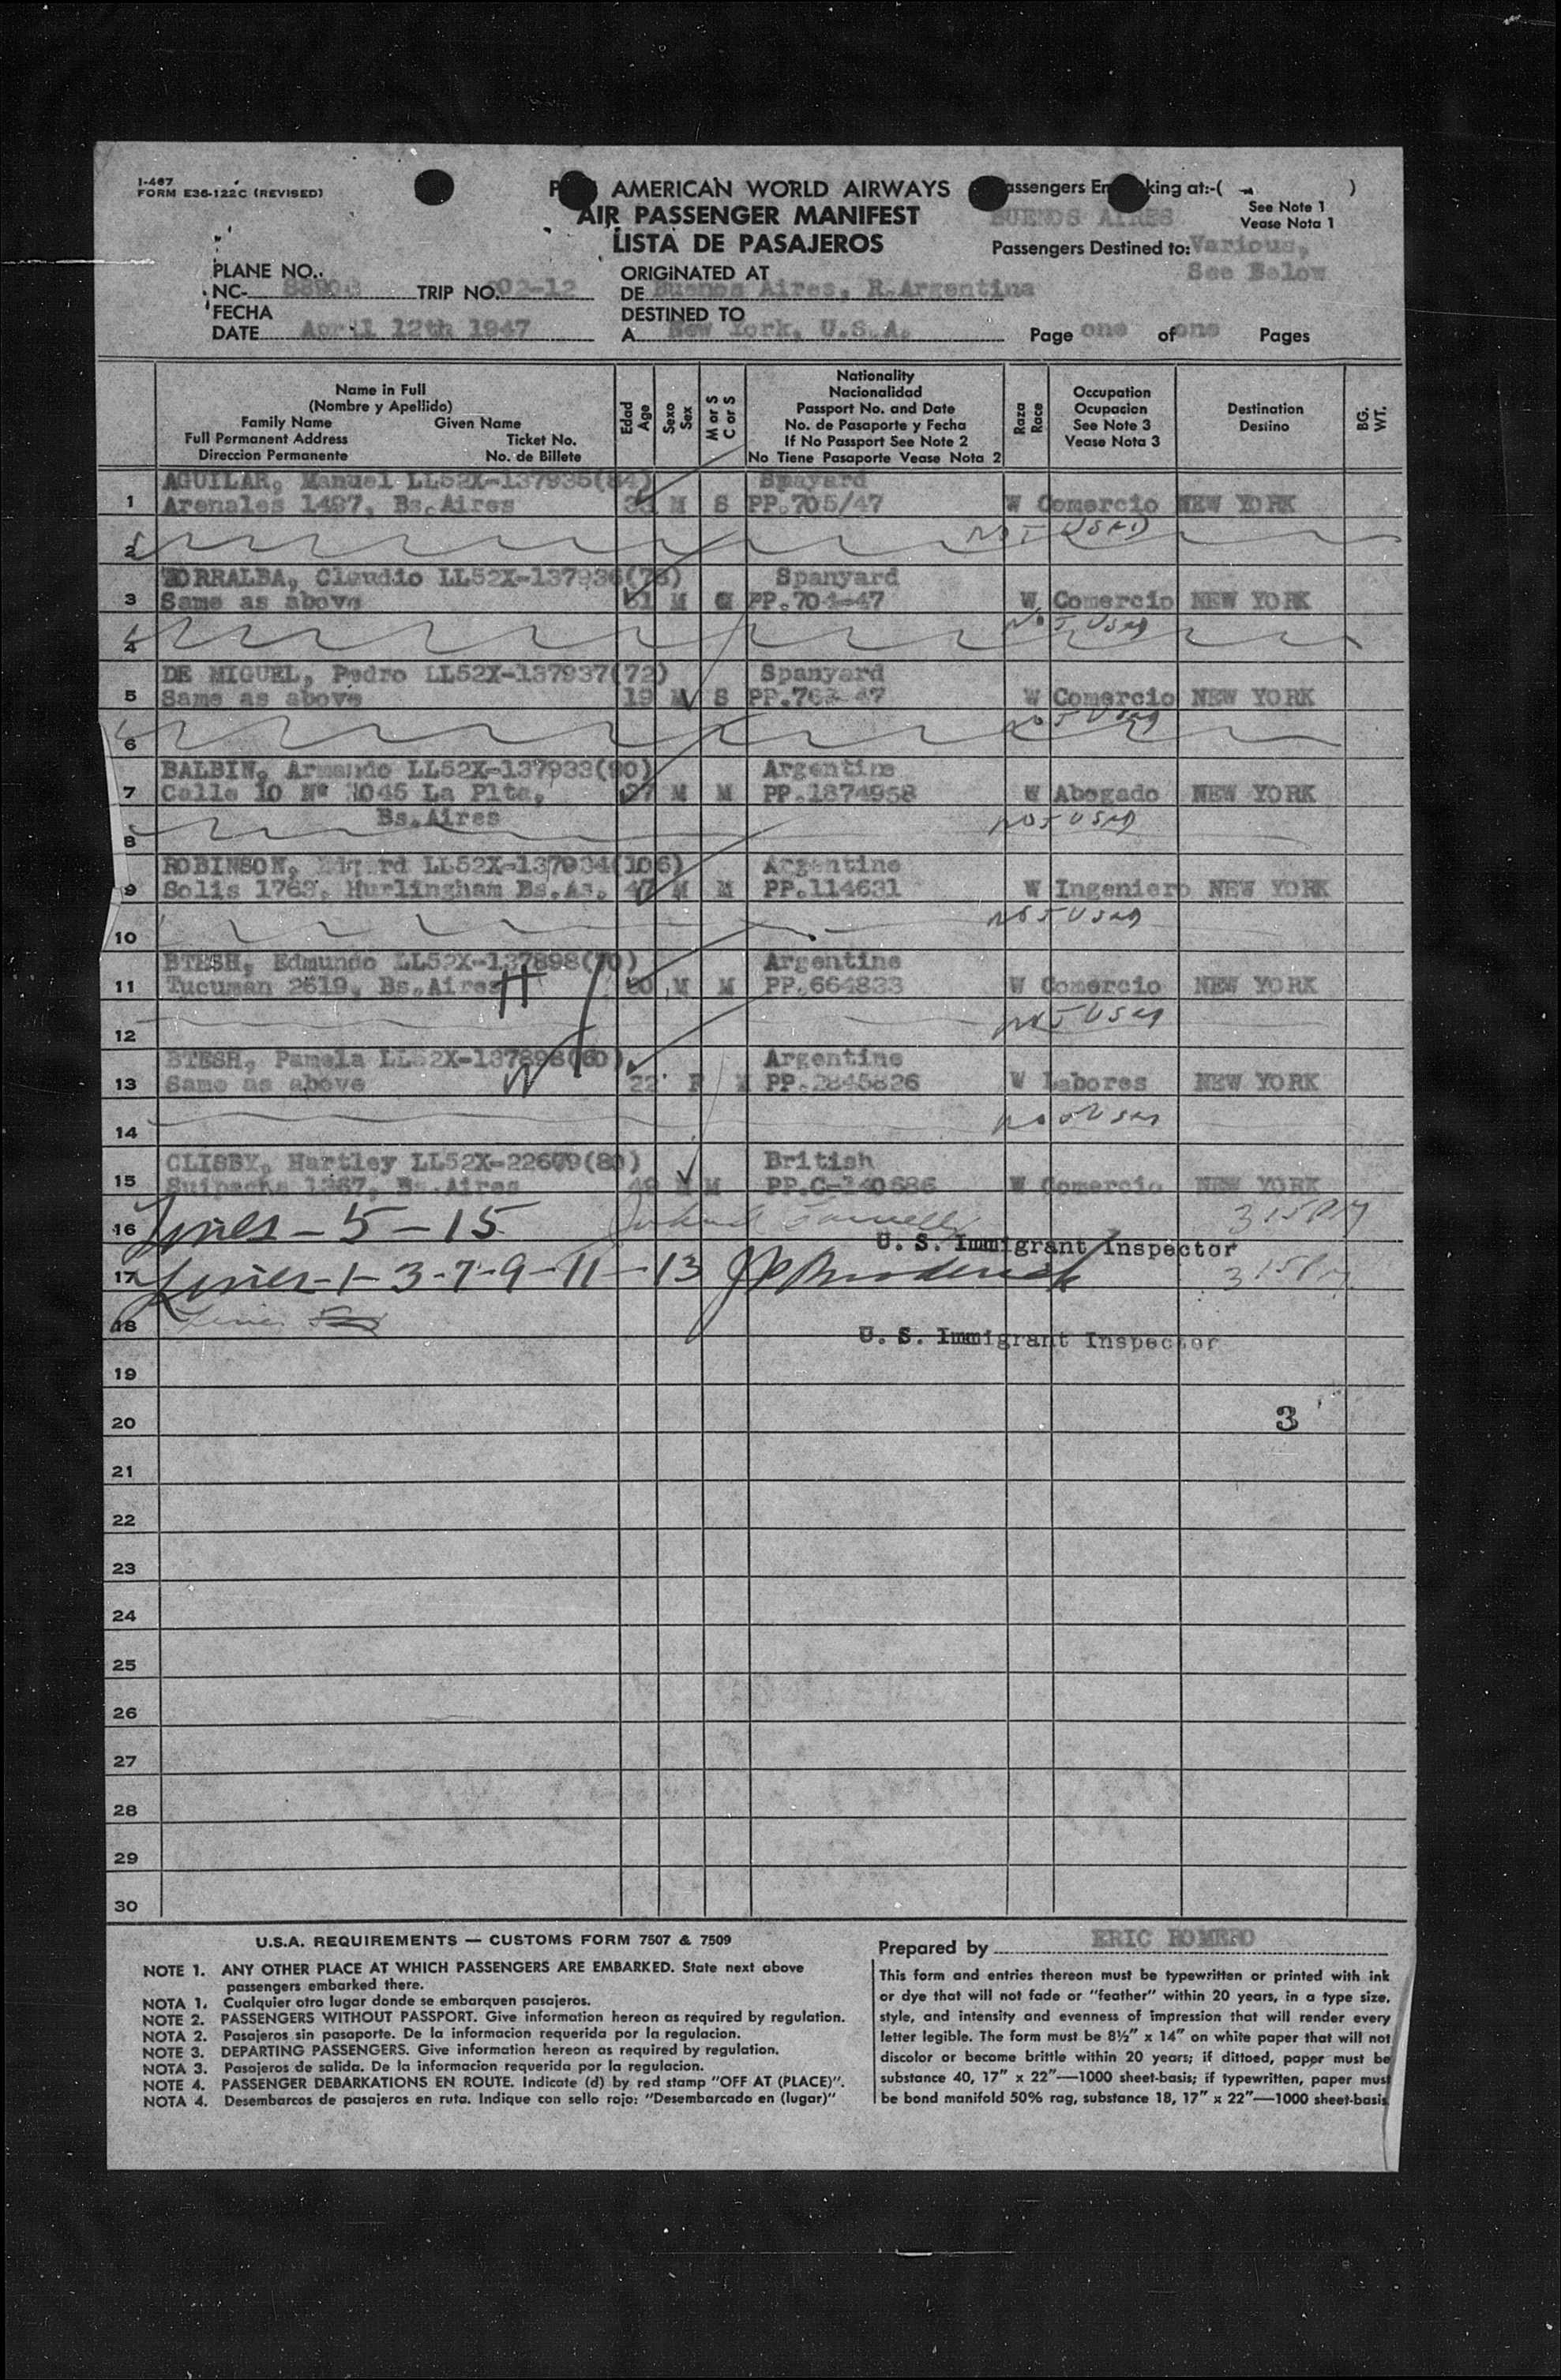 I-467
FORM E36-122C (REVISED)
AMERICAN WORLD AIRWAYS
AIR PASSENGER MANIFEST
LISTA DE PASAJEROS
assengers En king at:-( )
BUENOS AIRES
See Note 1
Vease Nota 1
Passengers Destined to: Various,
See Below
PLANE NO.
NC- TRIP NO. 02-12
FECHA
DATE April 12th 1947
ORIGINATED AT
DE Buenos Aires, R.Argentina
DESTINED TO
A New York, U.S.A.
Page one of one Pages
Name in Full
(Nombre y Apellido)
Family Name Given Name
Full Permanent Address Ticket No.
Direccion Permanente No. de Billete
Edad
Age
Sexo
Sex
M or S
C or S
Nationality
Nacionalidad
Passport No. and Date
No. de Pasaporte y Fecha
If No Passport See Note 2
No Tiene Pasaporte Vease Nota 2
Raza
Race
Occupation
Ocupacion
See Note 3
Vease Nota 3
Destination
Destino
BG.
WT.
AGUILAR, Manuel LL52X-137935(84) Spayard
1 Arenales 1497, Bs.Aires M S PP.705/47 W Comercio NEW YORK
2 NOT USED
TORRALBA, Claudio LL52X-137936(78) Spanyard
3 Same as above 51 M PP.704-47 W Comercio NEW YORK
4 NOT USED
DE MIGUEL, Pedro LL52X-137937(72) Spanyard
5 Same as above 19 M S PP.763-47 W Comercio NEW YORK
6 NOT USED
BALBIN, Armando LL52X-137933(90) Argentine
7 Calle 10 Nº 1045 La Plta, 37 M M PP.1874958 W Abogado NEW YORK
Bs.Aires
8 NOT USED
ROBINSON, LL52X-137934(106) Argentine
9 Solis 1763, Hurlingham Bs.As. 47 M M PP.114631 W Ingeniero NEW YORK
10 NOT USED
BTESH, Edmundo LL52X-137898(70) Argentine
11 Tucuman 2619, Bs.Aires H 30 M M PP.664833 W Comercio NEW YORK
12 NOT USED
BTESH, Pamela LL52X-137898(60) Argentine
13 Same as above W 22 F M PP.2845826 W Labores NEW YORK
14 NOT USED
CLISBY, Hartley LL52X-22679(80) British
15 Suipacha 1367, Bs.Aires 49 M M PP.C-140686 W Comercio NEW YORK
16 Lines - 5 - 15 3 15 PM
U. S. Immigrant Inspector
17 Lines - 1 - 3 - 7 - 9 - 11 - 13 J P Broderick 3 15 PM
18 Lines
U. S. Immigrant Inspector
19
20 3
21
22
23
24
25
26
27
28
29
30
U.S.A. REQUIREMENTS — CUSTOMS FORM 7507 & 7509
NOTE 1. ANY OTHER PLACE AT WHICH PASSENGERS ARE EMBARKED. State next above
passengers embarked there.
NOTA 1. Cualquier otro lugar donde se embarquen pasajeros.
NOTE 2. PASSENGERS WITHOUT PASSPORT. Give information hereon as required by regulation.
NOTA 2. Pasajeros sin pasaporte. De la informacion requerida por la regulacion.
NOTE 3. DEPARTING PASSENGERS. Give information hereon as required by regulation.
NOTA 3. Pasajeros de salida. De la informacion requerida por la regulacion.
NOTE 4. PASSENGER DEBARKATIONS EN ROUTE. Indicate (d) by red stamp "OFF AT (PLACE)".
NOTA 4. Desembarcos de pasajeros en ruta. Indique con sello rojo: "Desembarcado en (lugar)"
Prepared by ERIC ROMERO
This form and entries thereon must be typewritten or printed with ink
or dye that will not fade or "feather" within 20 years, in a type size,
style, and intensity and evenness of impression that will render every
letter legible. The form must be 8½" x 14" on white paper that will not
discolor or become brittle within 20 years; if dittoed, paper must be
substance 40, 17" x 22"—1000 sheet-basis; if typewritten, paper must
be bond manifold 50% rag, substance 18, 17" x 22"—1000 sheet-basis